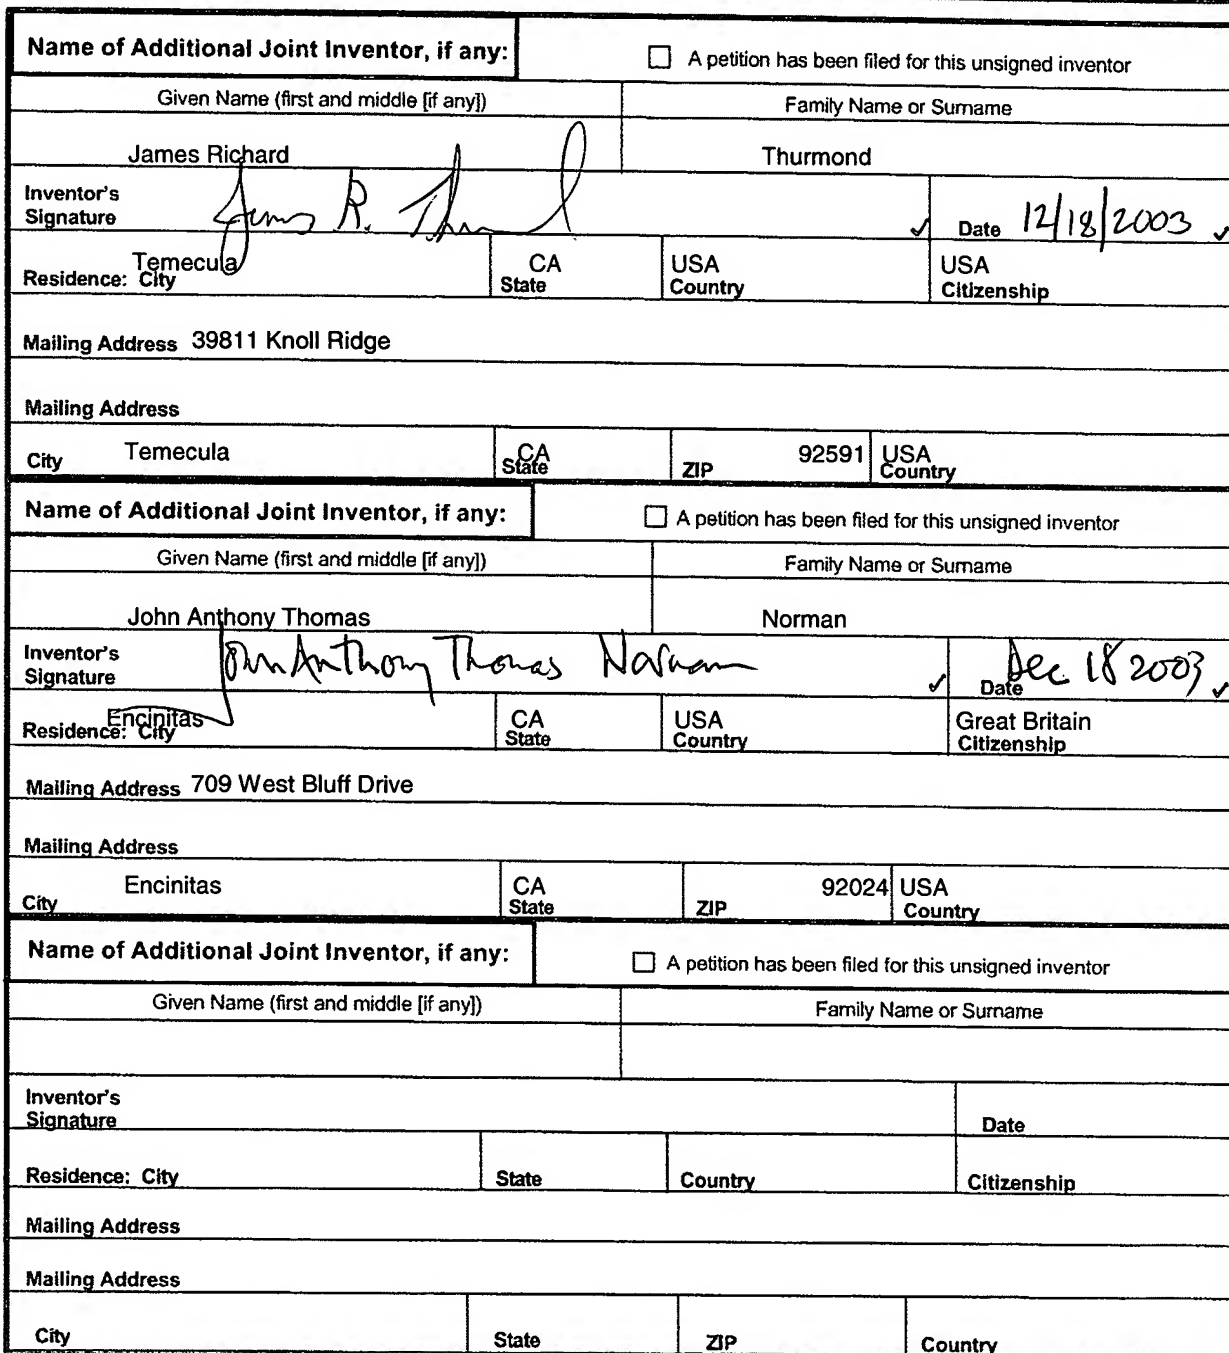 Name of Additional Joint Inventor, if any: A petition has been filed for this unsigned inventor
Given Name (first and middle [if any]) Family Name or Surname
James Richard Thurmond
Inventor's
Signature James R. Thurmond Date 12/18/2003
Temecula CA USA USA
Residence: City State Country Citizenship
Mailing Address 39811 Knoll Ridge
Mailing Address
Temecula CA 92591 USA
City State ZIP Country
Name of Additional Joint Inventor, if any: A petition has been filed for this unsigned inventor
Given Name (first and middle [if any]) Family Name or Surname
John Anthony Thomas Norman
Inventor's
Signature John Anthony Thomas Norman Date Dec 18 2003
Encinitas CA USA Great Britain
Residence: City State Country Citizenship
Mailing Address 709 West Bluff Drive
Mailing Address
Encinitas CA 92024 USA
City State ZIP Country
Name of Additional Joint Inventor, if any: A petition has been filed for this unsigned inventor
Given Name (first and middle [if any]) Family Name or Surname
Inventor's
Signature Date
Residence: City State Country Citizenship
Mailing Address
Mailing Address
City State ZIP Country